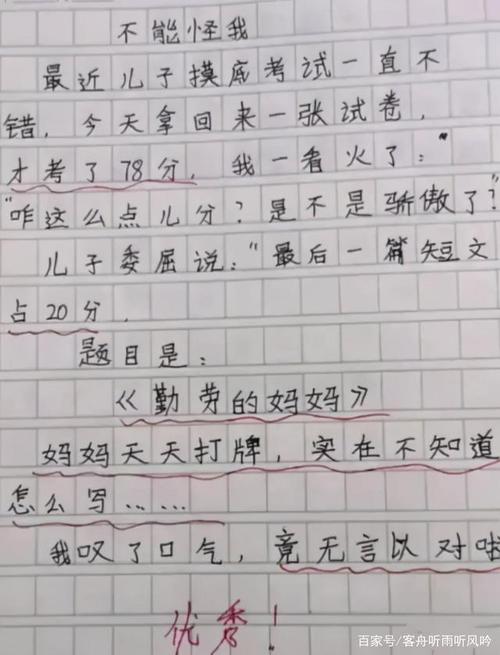 不能怪我
最近儿子摸底考试一直不
错，今天拿回来一张试卷，
才考了78分，我一看火了："
"咋这么点儿分？是不是骄傲了？"
儿子委屈说："最后一篇短文
占20分．
题目是：
《勤劳的妈妈》
妈妈天天打牌，实在不知道
怎么写……
我叹了口气，竟无言以对啦
优秀！
百家号/客舟听雨听风吟